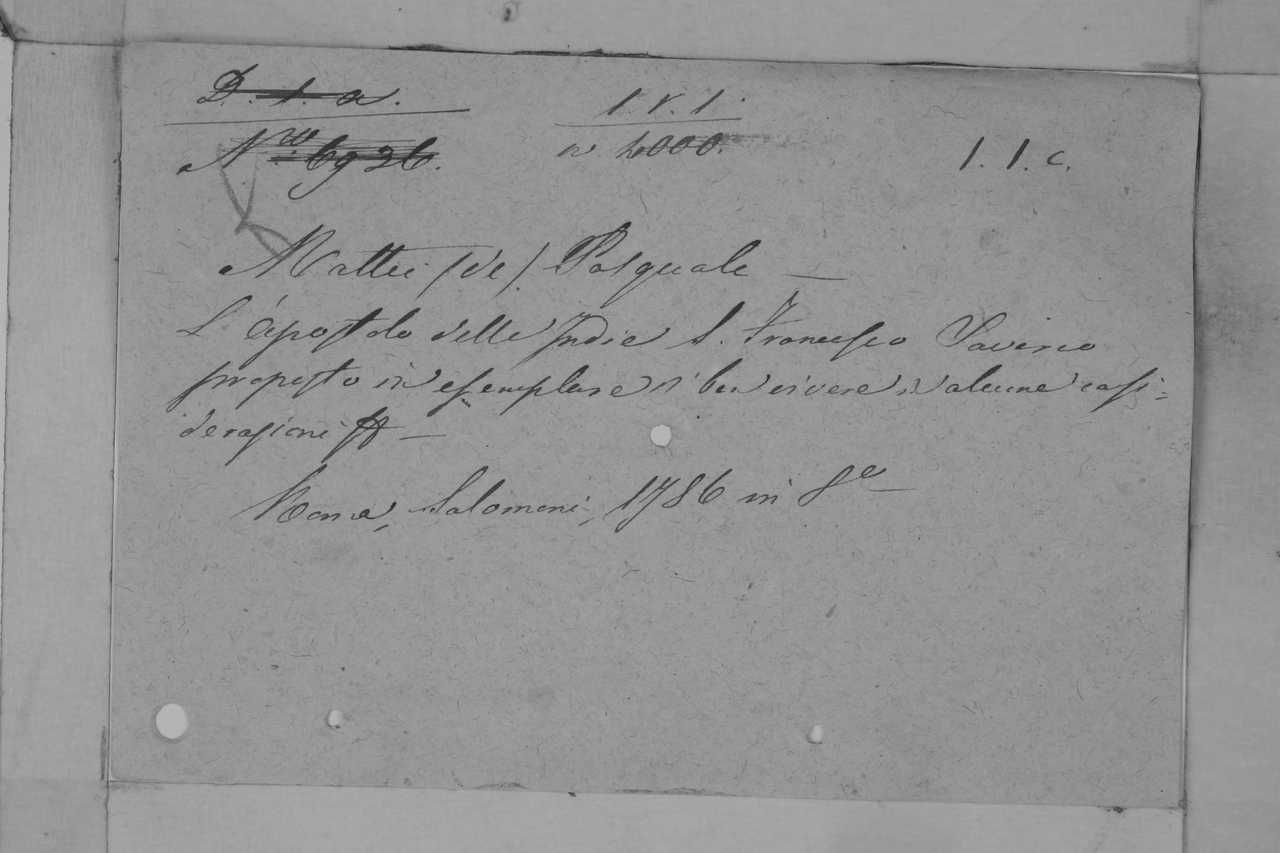 D. 1. a.
1. V. 1.
Nro 6926.
n 4000.
1. 1. c.
Mattei (de) Pasquale —
L'Apostolo delle Indie S. Francesco Saverio
proposto in esemplare di ben vivere in alcune cosi=
derasioni —
Roma, Salomoni, 1786 in 8o —